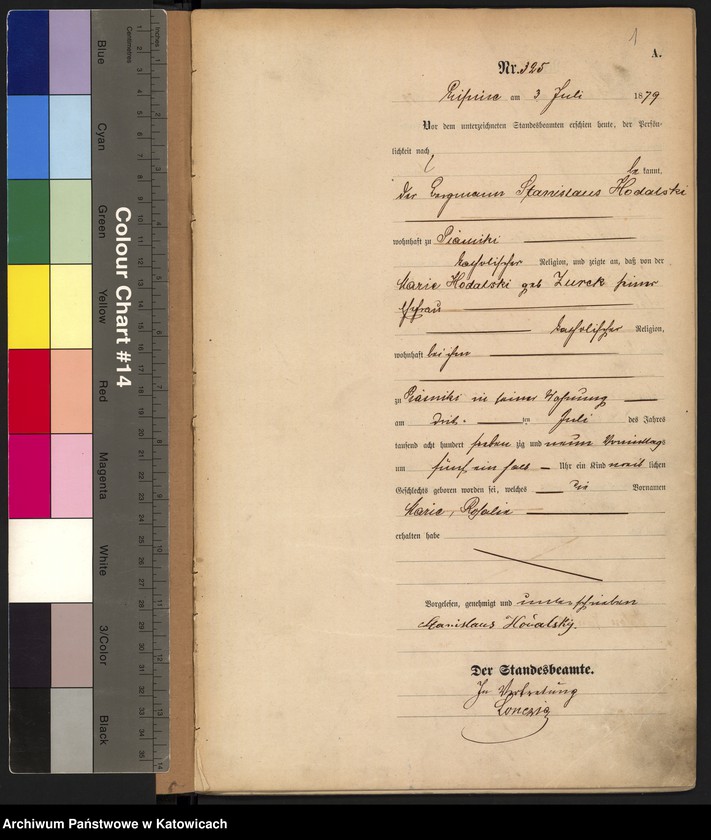 Blue
Cyan
Green
Yellow
Red
Magenta
White
3/Color
Black
Colour Chart #14
Centimetres
Inches
1
A.
Nr. 325
am 3 Juli 1879
Vor dem unterzeichneten Standesbeamten erschien heute, der Persön-
lichkeit nach
be kannt,
der Bergmann Stanislaus Hodalski
wohnhaft zu
katholischer Religion, und zeigte an, daß von der
Marie Hodalski geb Zurek seiner
Ehefrau
katholischer Religion,
wohnhaft bei ihm
zu in seiner Wohnung
am drit. ten Juli des Jahres
tausend acht hundert sieben zig und neun Vormittags
um fünf ein halb Uhr ein Kind weib lichen
Geschlechts geboren worden sei, welches die Vornamen
Marie, Rosalie
erhalten habe
Vorgelesen, genehmigt und unterschrieben
Stanislaus Hodalsky.
Der Standesbeamte.
In Vertretung
Archiwum Państwowe w Katowicach